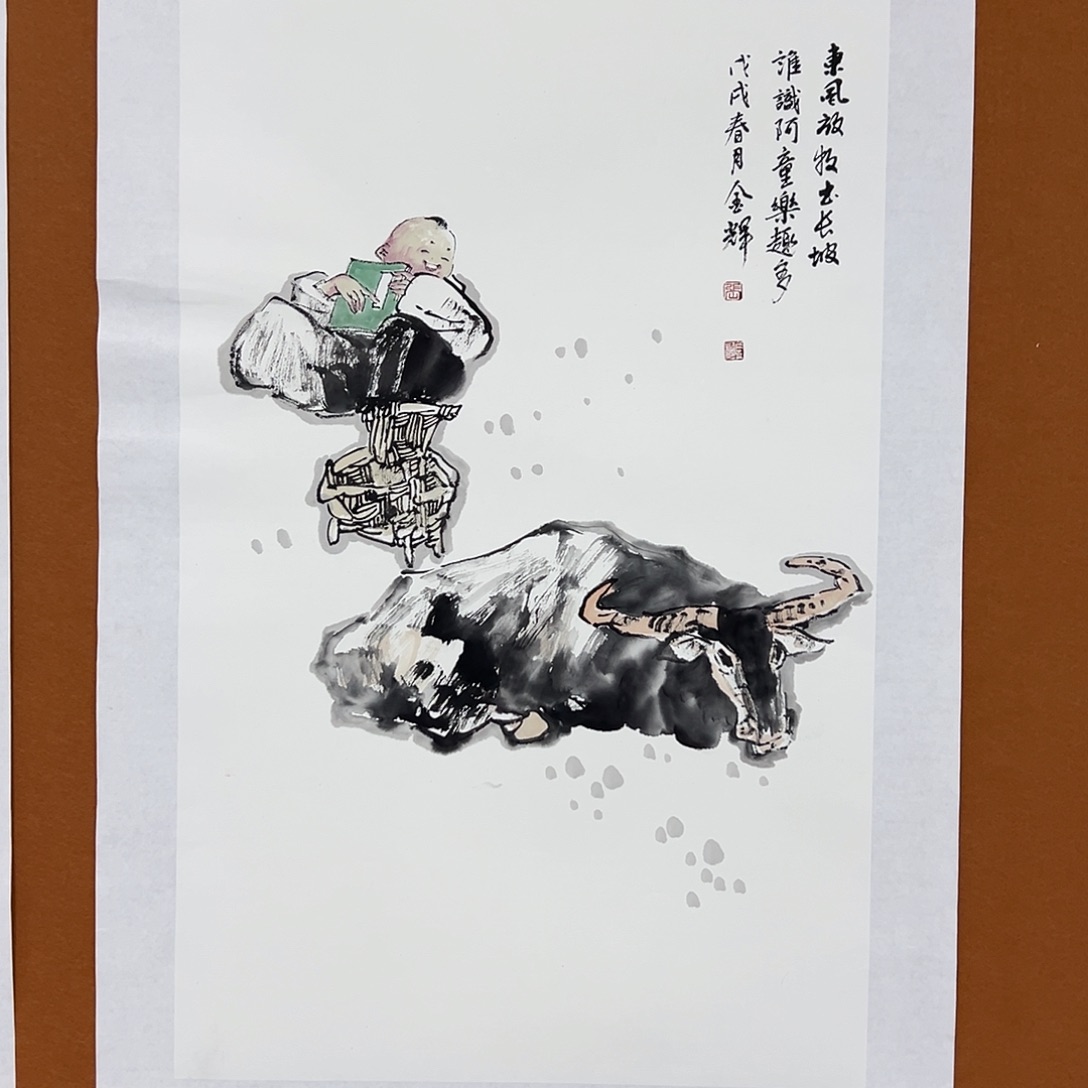 東風放牧出长坡
誰識阿童樂趣多
戊戌春月金輝